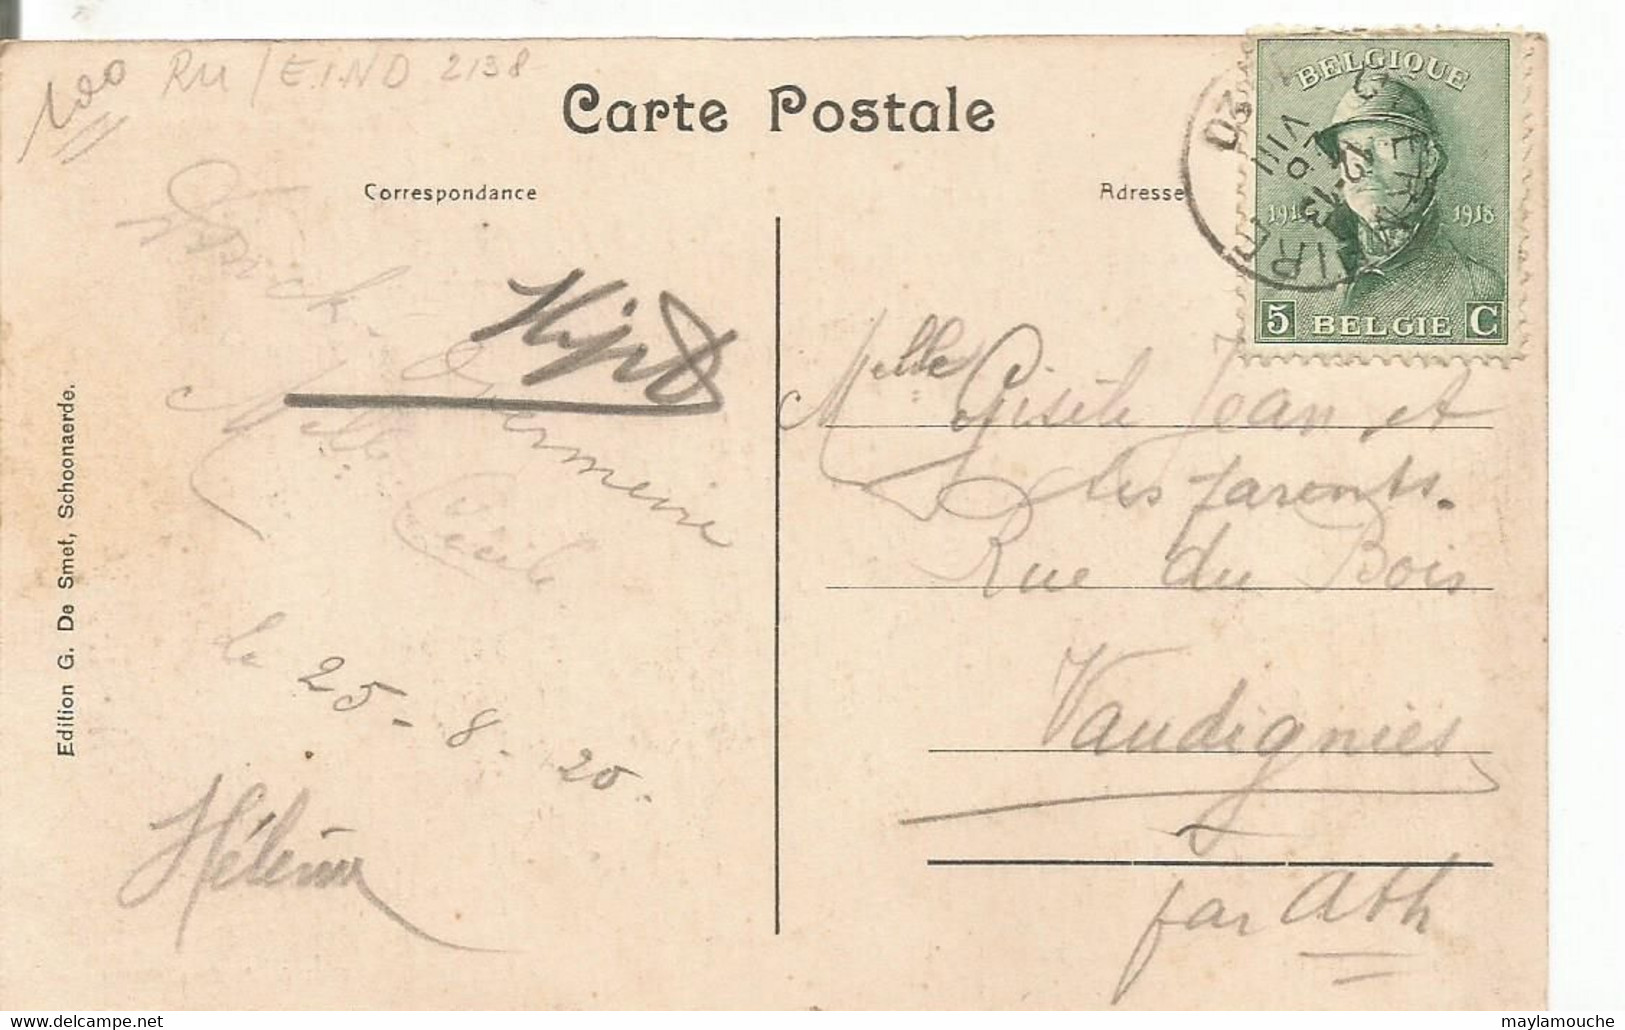 100 RU/EIND 2138
Carte Postale
Correspondance
Adresse
BELGIQUE
1918
5 BELGIE C
12-13
VIII
20
Edition G. De Smet, Schoonaerde.
Germaine
Melle
Cécile
le 25-8-20.
Hélène
Melle Gisèle Jean et
les parents.
Rue du Bois
Vaudignies
par Ath
www.delcampe.net
maylamouche